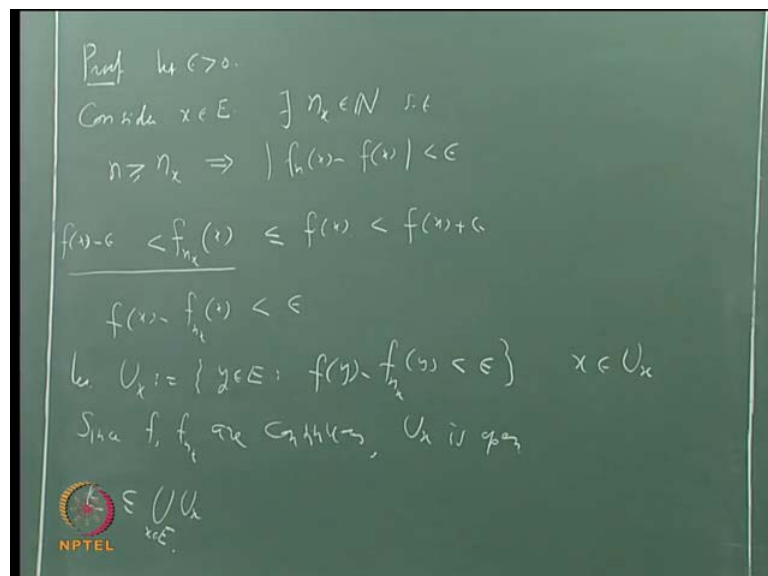 Proof let ε>0.
Consider x ∈ E. ∃ n_x ∈ ℕ s.t
n ≥ n_x ⇒ | f_n(x) - f(x) | < ε
f(x)-ε < f_{n_x}(x) ≤ f(x) < f(x)+ε
f(x) - f_{n_x}(x) < ε
let U_x := { y ∈ E : f(y) - f_{n_x}(y) < ε } x ∈ U_x
Since f, f_{n_x} are continuous, U_x is open
⊆ ⋃_{x∈E} U_x
NPTEL